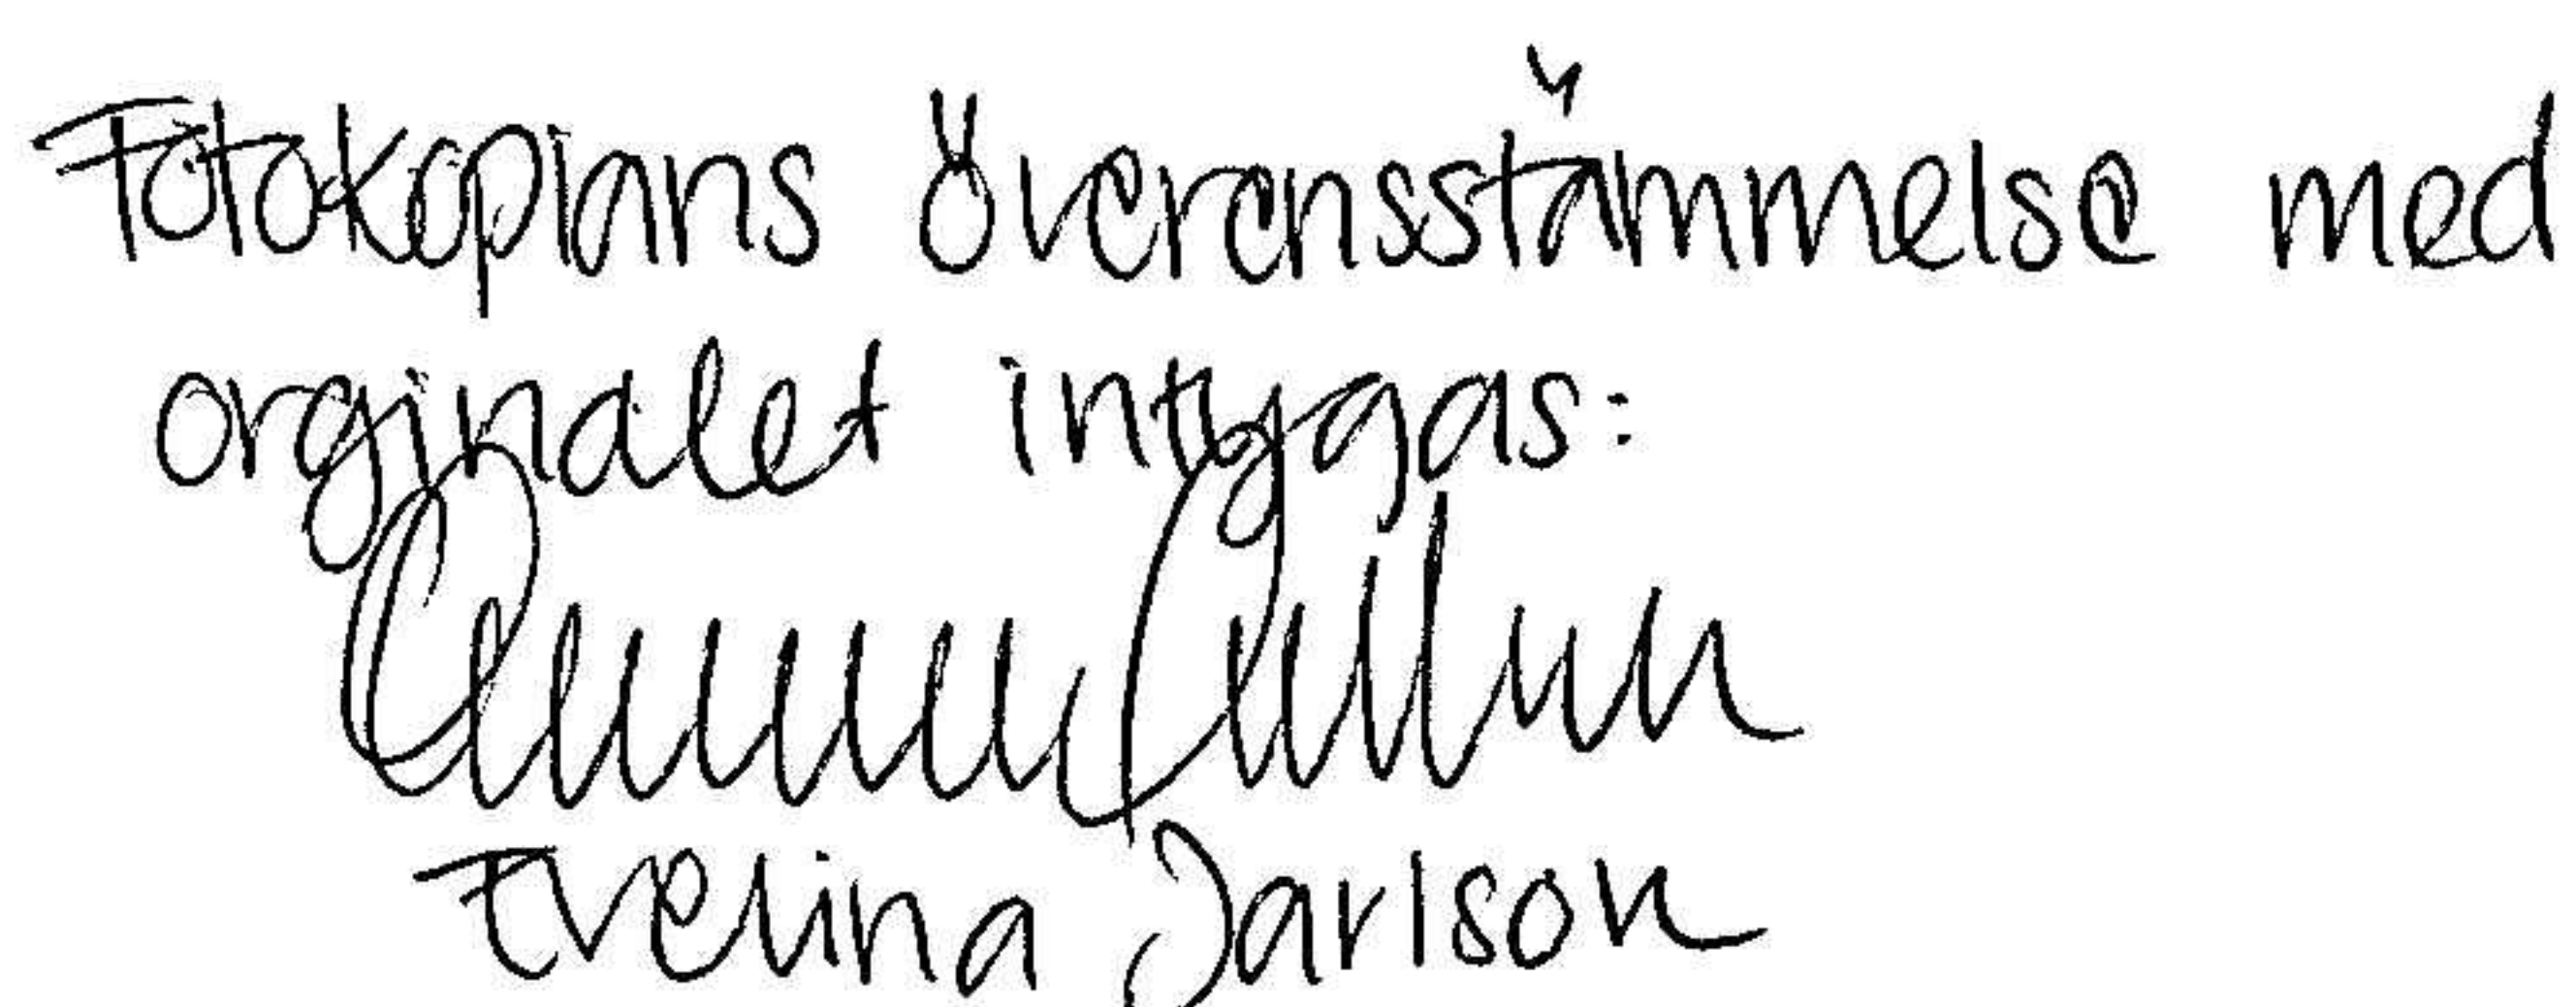 Fotokopians överensstämmelse med
orginalet intygas:
Evelina Jarlson